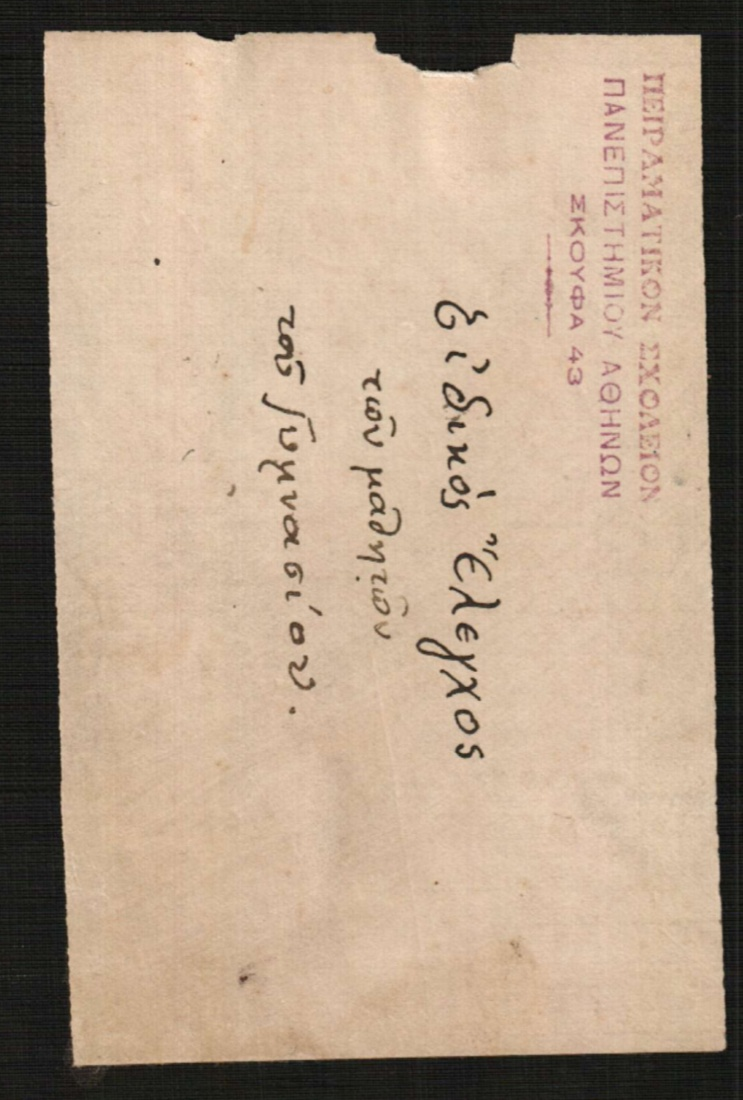 ΠΕΙΡΑΜΑΤΙΚΟΝ ΣΧΟΛΕΙΟΝ
ΠΑΝΕΠΙΣΤΗΜΙΟΥ ΑΘΗΝΩΝ
ΣΚΟΥΦΑ 43
Εἰδικὸς Ἔλεγχος
τῶν μαθητῶν
τοῦ Γυμνασίου.